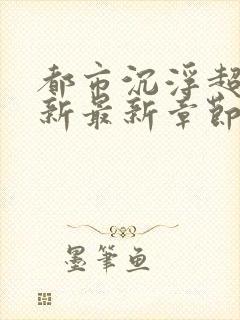 都市沉浮超
新最新章节
墨笔鱼